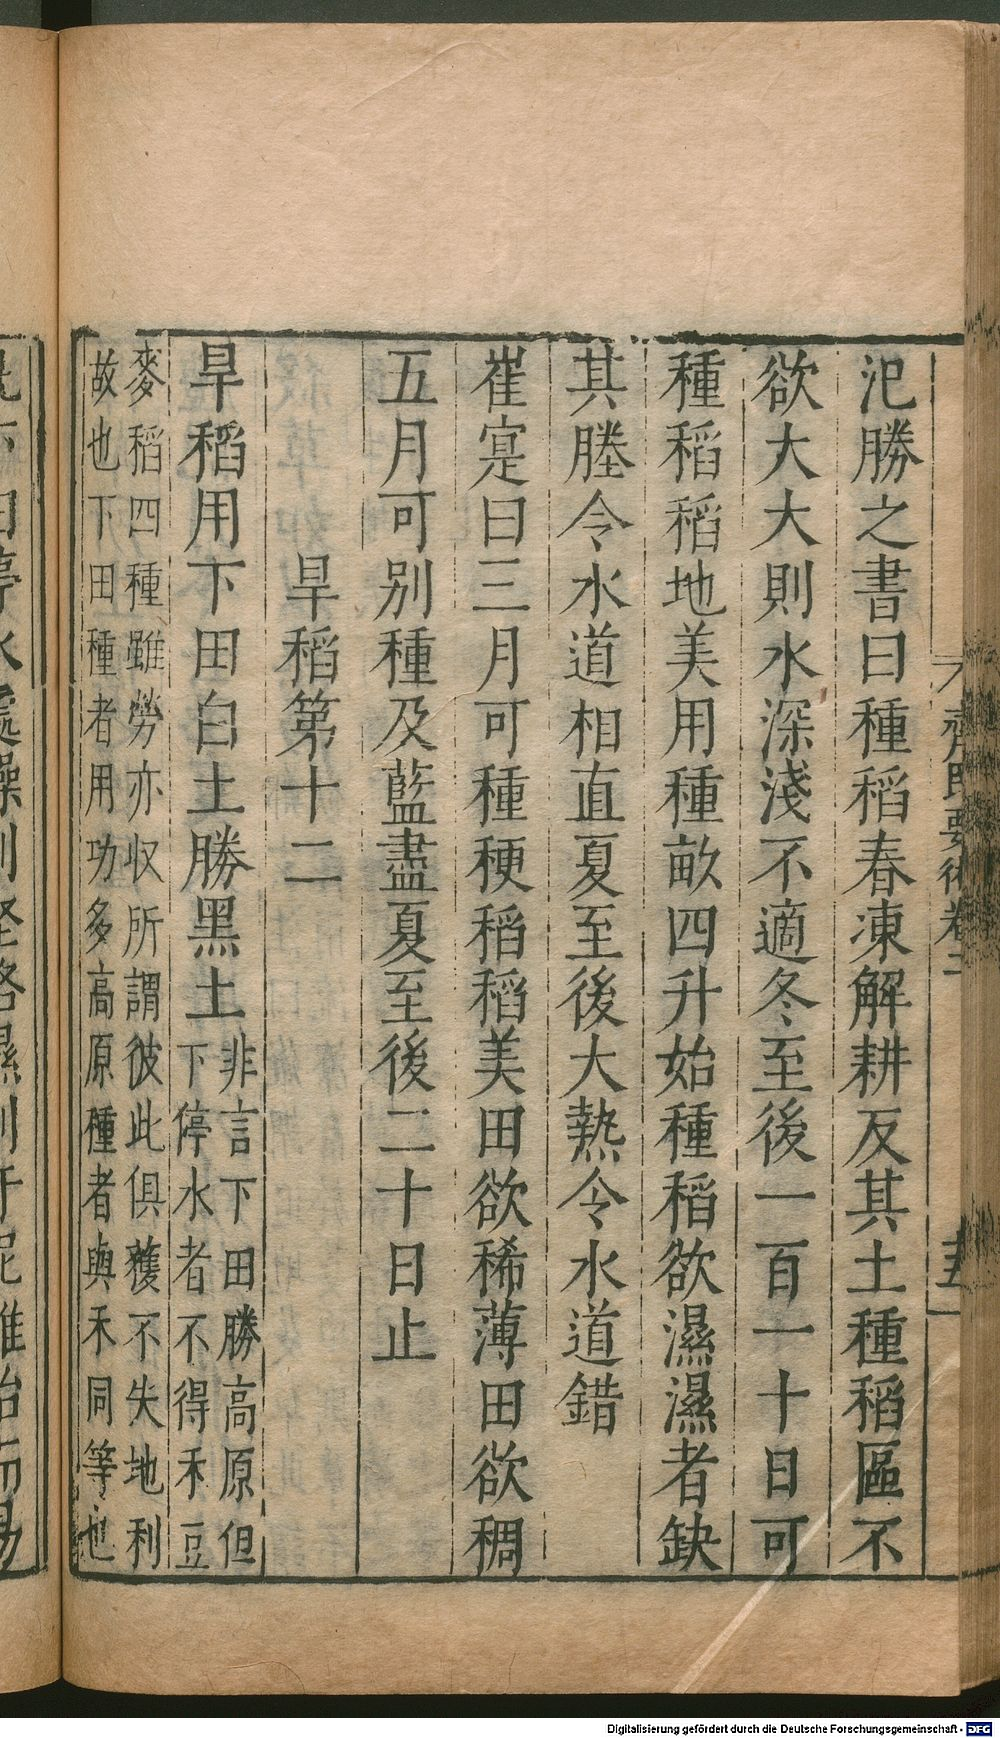 齊民要術卷二
十五
氾勝之書曰種稻春凍解耕反其土種稻區不
欲大大則水深淺不適冬至後一百一十日可
種稻稻地美用種畝四升始種稻欲濕濕者缺
其塍令水道相直夏至後大熱令水道錯
崔寔曰三月可種稉稻稻美田欲稀薄田欲稠
五月可别種及藍盡夏至後二十日止
旱稻第十二
旱稻用下田白土勝黑土
非言下田勝高原但
下停水者不得禾豆
麥稻四種雖勞亦收所謂彼此俱獲不失地利
故也下田種者用功多高原種者與禾同等也
Digitalisierung gefördert durch die Deutsche Forschungsgemeinschaft - DFG